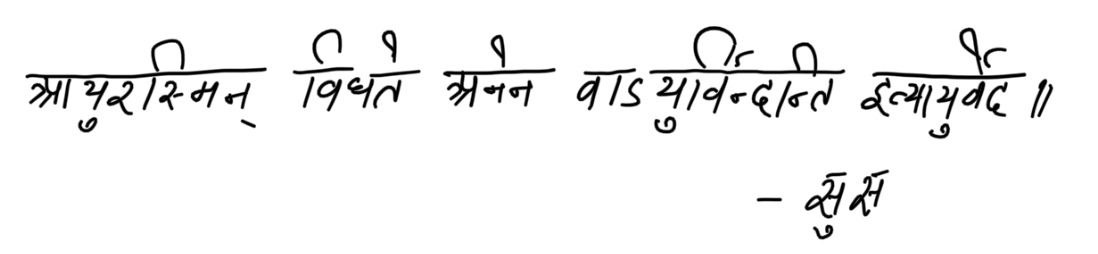 आयुरस्मिन् विधते अनेन वाऽयुर्विन्दन्ति इत्यायुर्वेद ॥
- सु सं